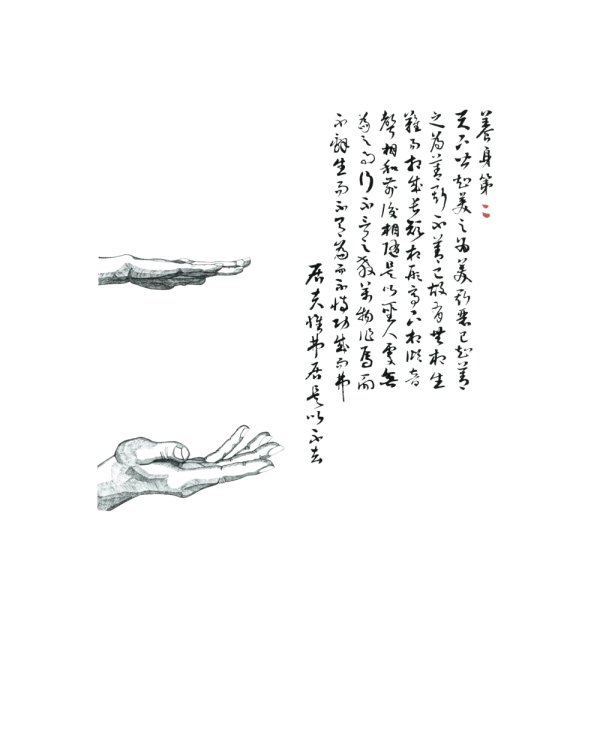 養身第二
天下皆知美之為美斯惡已知善
之為善斯不善已故有無相生
難易相成長短相形高下相傾音
聲相和前後相隨是以聖人處無
為之事行不言之教萬物作焉而
不辭生而不有為而不恃功成而弗
居夫惟弗居是以不去